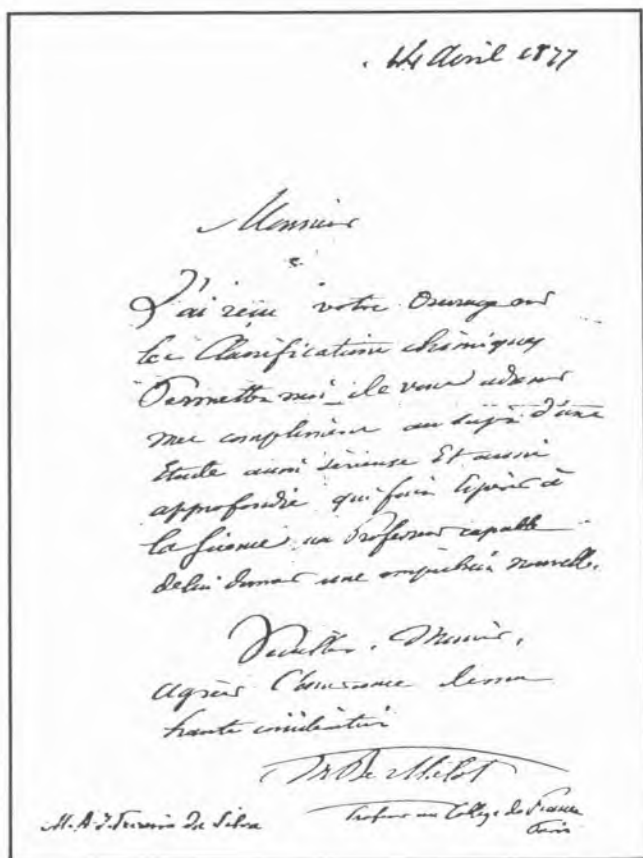 14 Avril 1877
Monsieur
J'ai reçu votre Ouvrage sur
les Classifications chimiques
Permettez moi de vous adresser
mes compliments au sujet d'une
Etude aussi sérieuse Et aussi
approfondie qui fait espérer à
la Science un Professeur capable
de lui donner une impulsion nouvelle.
Veuillez, Monsieur,
agréer l'assurance de ma
haute considération
Professeur au Collège de France
Paris
M. A. J. Ferreira Da Silva